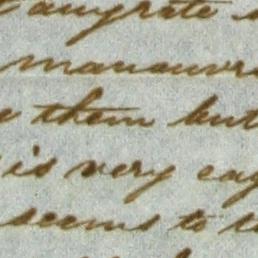 at anyrate
manauvr
them but
is very eag
seems to